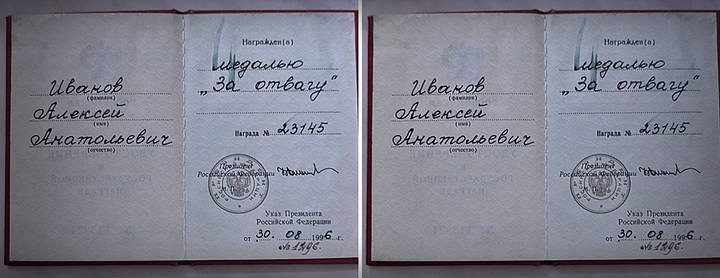 Иванов
(фамилия)
Алексей
(имя)
Анатольевич
(отчество)
Награжден(а)
медалью
„За отвагу"
Награда № 23145
Президент
Российской Федерации
М.П.
Указ Президента
Российской Федерации
от 30. 08 1996 г.
№ 1296.
Иванов
(фамилия)
Алексей
(имя)
Анатольевич
(отчество)
Награжден(а)
медалью
„За отвагу"
Награда № 23145
Президент
Российской Федерации
М.П.
Указ Президента
Российской Федерации
от 30. 08 1996 г.
№ 1296.